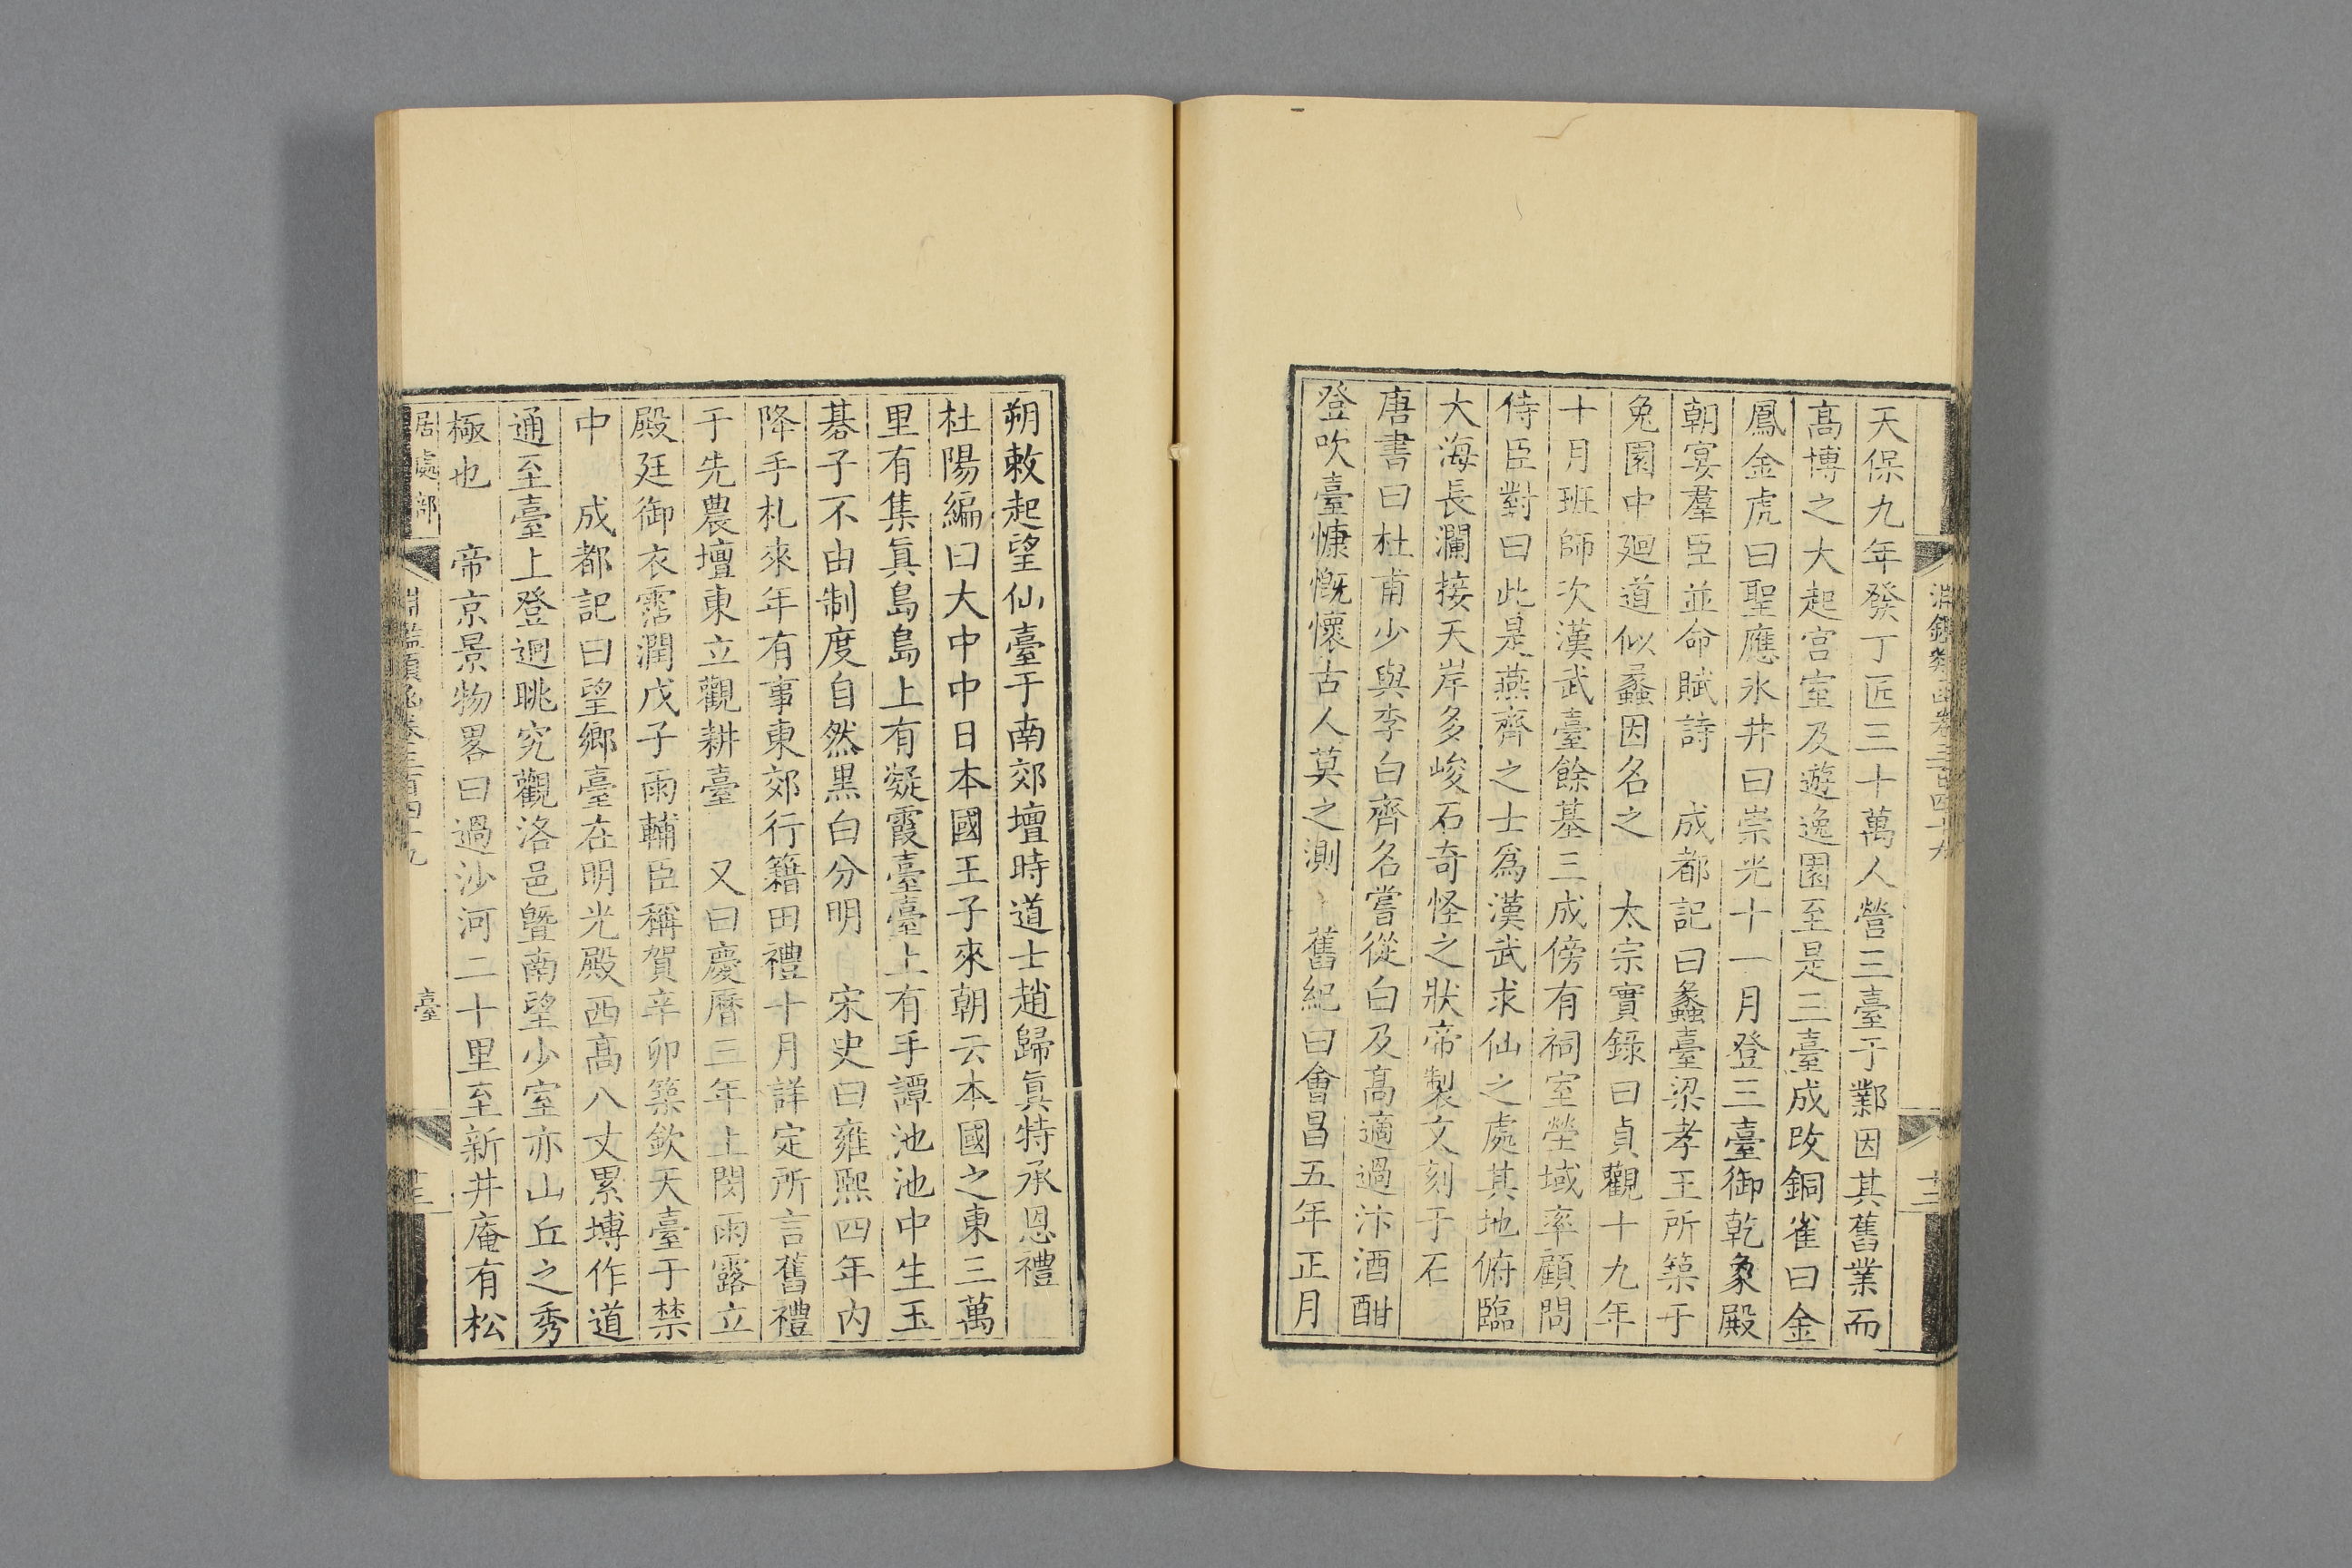 天保九年發丁匠三十萬人營三臺于鄴因其舊業而
高博之大起宫室及遊逸園至是三臺成改銅雀曰金
鳳金虎曰聖應氷井曰崇光十一月登三臺御乾象殿
朝宴羣臣並命賦詩　成都記曰蠡臺梁孝王所築于
兔園中廻道似蠡因名之　太宗實錄曰貞觀十九年
十月班師次漢武臺餘基三成傍有祠室塋域率顧問
侍臣對曰此是燕齊之士爲漢武求仙之處其地俯臨
大海長瀾接天岸多峻石奇怪之狀帝製文刻于石
唐書曰杜甫少與李白齊名嘗從白及高適過汴酒酣
登吹臺慷慨懷古人莫之測　舊紀曰會昌五年正月
朔敕起望仙臺于南郊壇時道士趙歸眞特承恩禮
杜陽編曰大中中日本國王子來朝云本國之東三萬
里有集眞島島上有凝霞臺臺上有手譚池池中生玉
碁子不由制度自然黒白分明　宋史曰雍熙四年内
降手札來年有事東郊行籍田禮十月詳定所言舊禮
于先農壇東立觀耕臺　又曰慶曆三年上閔雨露立
殿廷御衣霑潤戊子雨輔臣稱賀辛卯築欽天臺于禁
中　成都記曰望鄉臺在明光殿西高八丈累塼作道
通至臺上登迥眺究觀洛邑曁南望少室亦山丘之秀
極也　帝京景物畧曰過沙河二十里至新井庵有松
居處部
淵鑑類函卷三百四十九
臺